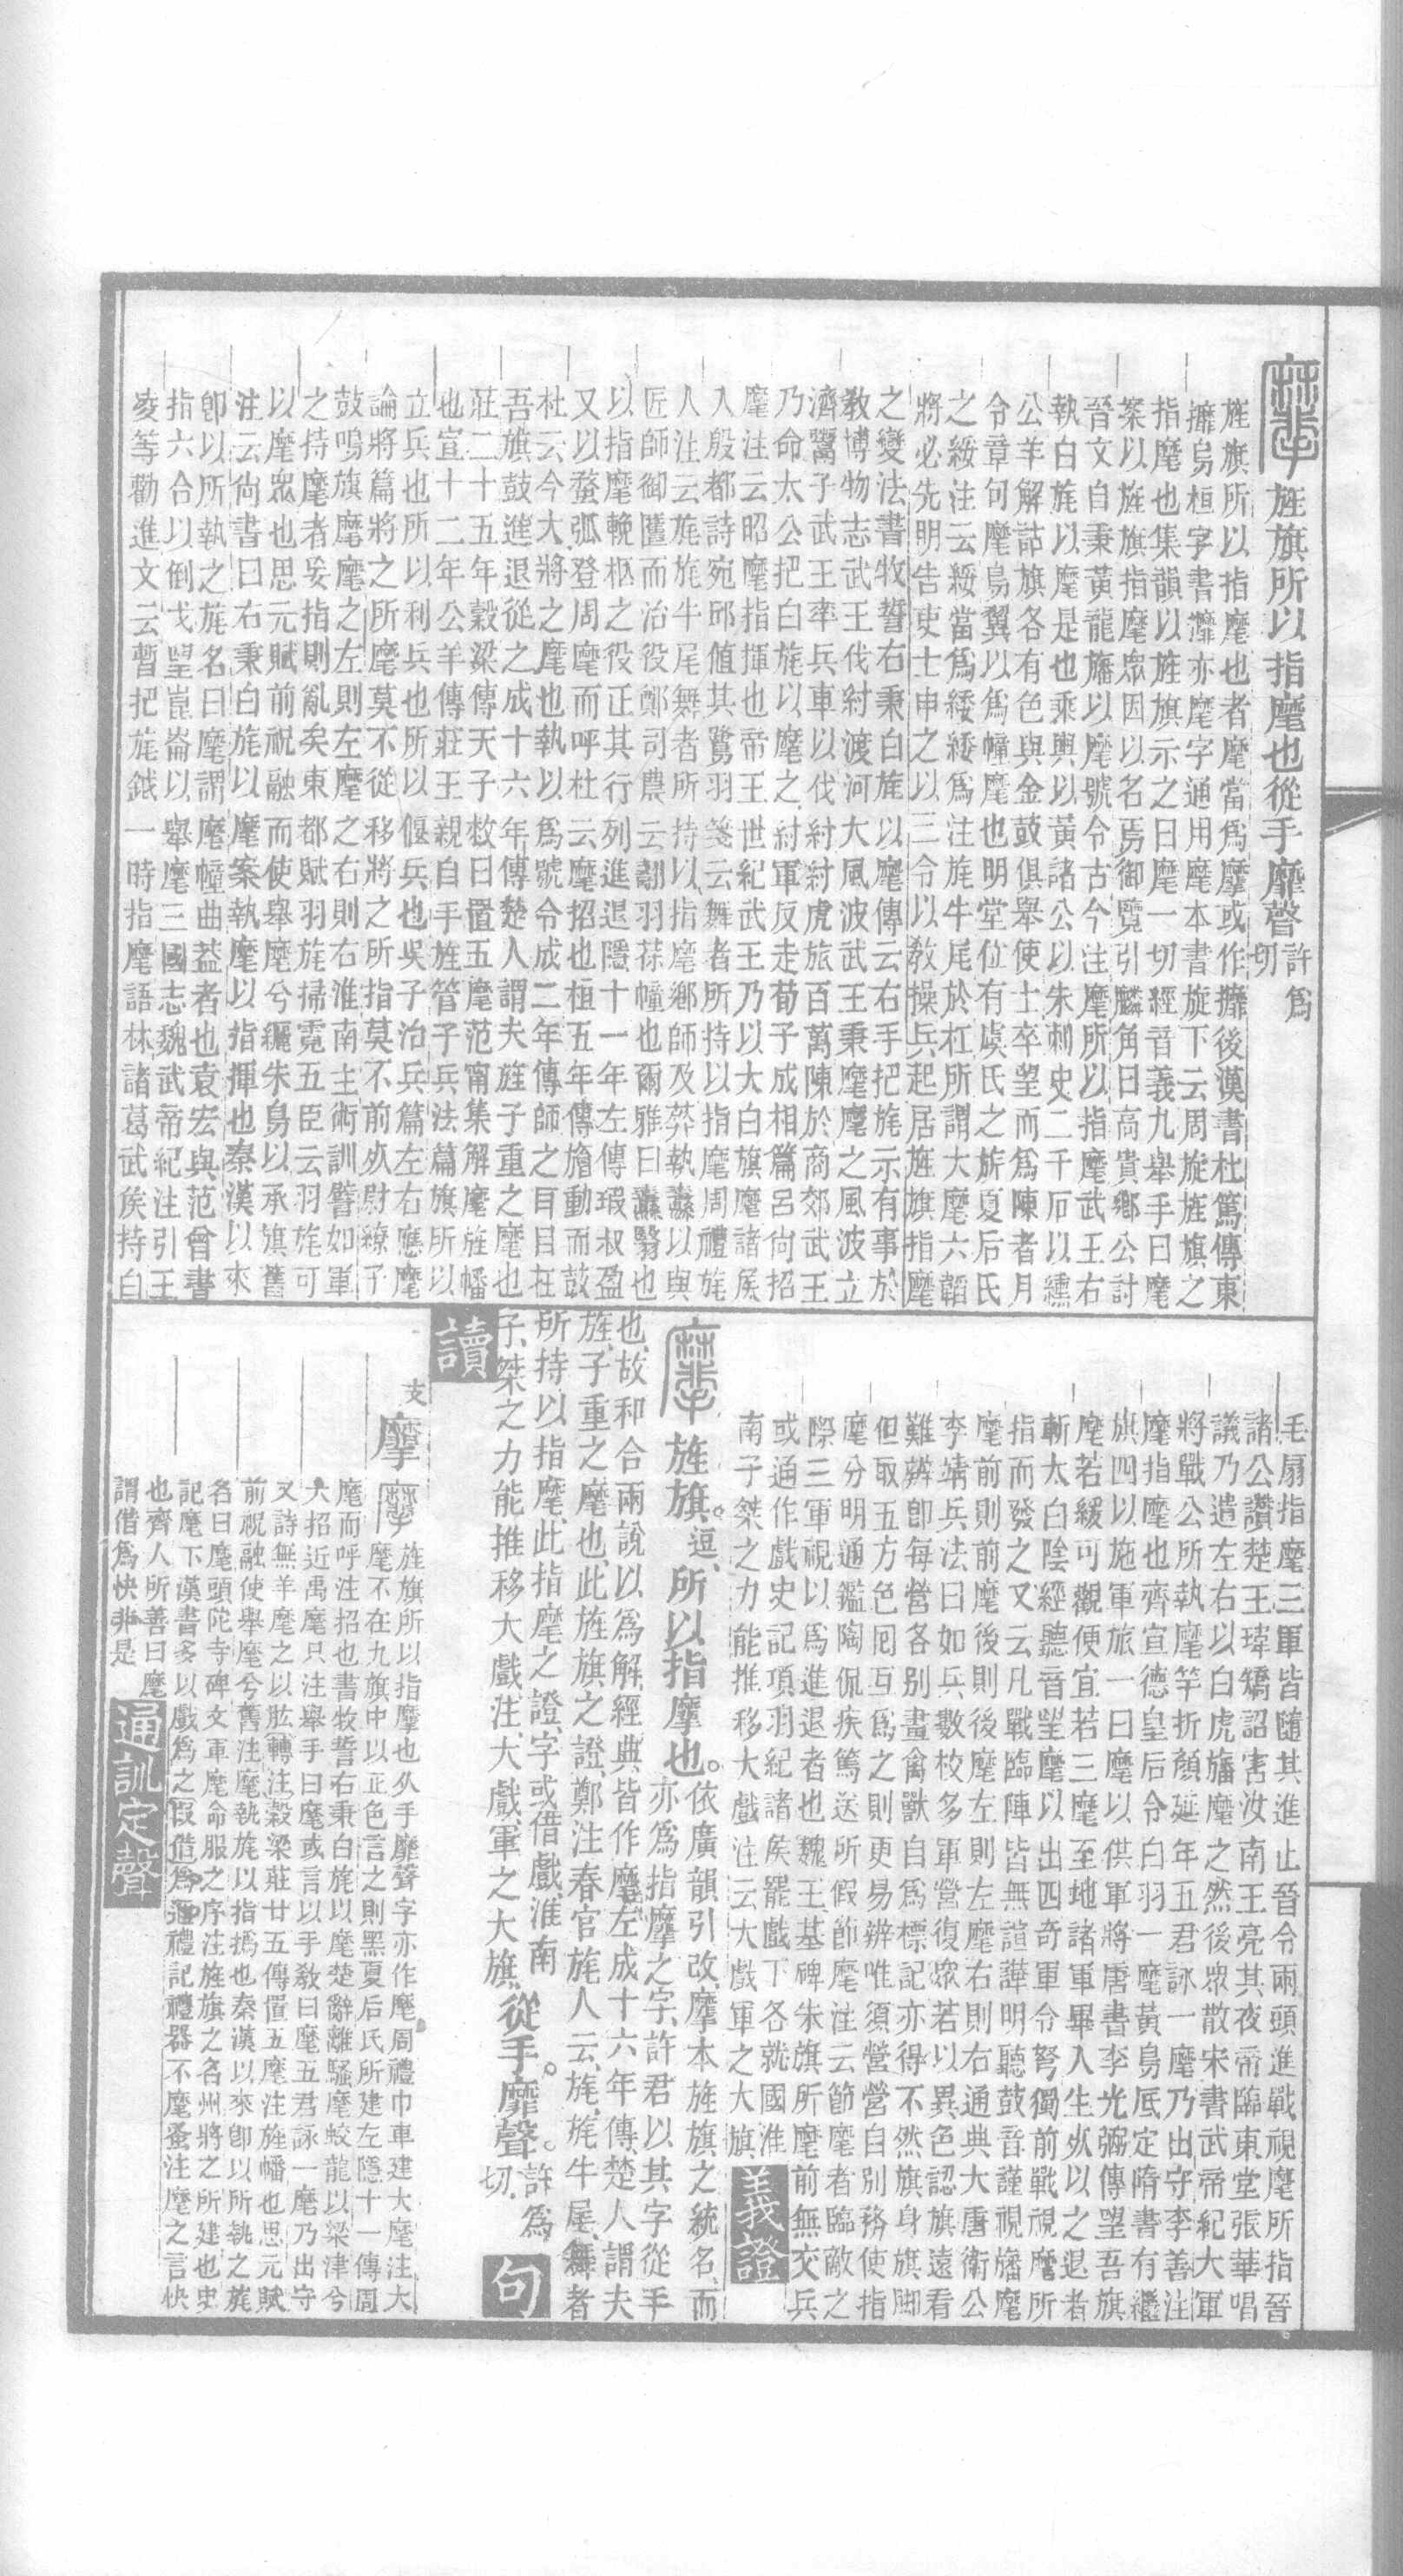 旌旗所以指麾也從手靡聲許爲切
旌旗所以指麾也者麾當爲摩或作攠後漢書杜篤傳東
攠烏桓字書攠亦麾字通用麾本書旋下云周旋旌旗之
指麾也集韻以旌旗示之曰麾一切經音義九舉手曰麾
案以旌旗指麾眾因以名焉御覽引麟角曰高貴鄉公討
晉文自秉黃龍旛以麾號令古今注麾所以指麾武王右
執白旄以麾是也乘輿以黃諸公以朱刺史二千石以纁
公羊解詁旗各有色與金鼓俱舉使士卒望而爲陳者月
令章句麾鳥翼以爲幢麾也明堂位有虞氏之旂夏后氏
之綏注云綏當爲緌緌爲注旄牛尾於杠所謂大麾六韜
將必先明告吏士申之以三令以教操兵起居旌旗指麾
之變法書牧誓右秉白旄以麾傳云右手把旄示有事於
教博物志武王伐紂渡河大風波武王秉麾麾之風波立
濟鬻子武王率兵車以伐紂紂虎旅百萬陳於商郊武王
乃命太公把白旄以麾之紂軍反走荀子成相篇呂尚招
麾注云昭麾指揮也帝王世紀武王乃以大白旗麾諸矦
入殷都詩宛邱值其鷺羽箋云舞者所持以指麾周禮旄
人注云旄旄牛尾舞者所持以指麾鄉師及葬執纛以與
匠師御匶而治役鄭司農云翿羽葆幢也爾雅曰纛翳也
以指麾輓柩之役正其行列進退隱十一年左傳瑕叔盈
又以蝥弧登周麾而呼杜云麾招也桓五年傳旝動而鼓
杜云今大將之麾也執以爲號令成二年傳師之耳目在
吾旗鼓進退從之成十六年傳楚人謂夫旌子重之麾也
莊二十五年穀梁傳天子救日置五麾范甯集解麾旌幡
也宣十二年公羊傳莊王親自手旌管子兵法篇旗所以
立兵也所以利兵也所以偃兵也吳子治兵篇左右應麾
論將篇將之所麾莫不從移將之所指莫不前㱃尉繚子
鼓鳴旗麾麾之左則左麾之右則右淮南主術訓譬如軍
之持麾者妄指則亂矣東都賦羽旄掃霓五臣云羽旄可
以麾眾也思元賦前祝融而使舉麾兮纚朱鳥以承旗舊
注云尚書曰右秉白旄以麾案執麾以指揮也秦漢以來
卽以所執之旄名曰麾謂麾幢曲葢者也袁宏與范曾書
指六合以倒戈望崑崙以舉麾三國志魏武帝紀注引王
凌等勸進文云暫把旄鉞一時指麾語林諸葛武矦持白
毛扇指麾三軍皆隨其進止晉令兩頭進戰視麾所指晉
諸公讚楚王瑋矯詔害汝南王亮其夜帝臨東堂張華唱
議乃遣左右以白虎旛麾之然後眾散宋書武帝紀大軍
將戰公所執麾竿折顏延年五君詠一麾乃出守李善注
麾指麾也齊宣德皇后令白羽一麾黃鳥底定隋書有繼
旗四以施軍旅一曰麾以供軍將唐書李光弼傳望吾旗
麾若緩可觀便宜若三麾至地諸軍畢入生㱃以之退者
斬太白陰經聽音望麾以出四奇軍令弩獨前戰視麾所
指而發之又云凡戰臨陣皆無諠譁明聽鼓音謹視旛麾
麾前則前麾後則後麾左則左麾右則右通典大唐衛公
李靖兵法曰如兵數校多軍營復眾若以異色認旗遠看
難辨卽每營各別畫禽獸自爲標記亦得不然旗身旗脚
但取五方色囘互爲之則更易辨唯須營營自別務使指
麾分明通鑑陶侃疾篤送所假節麾注云節麾者臨敵之
際三軍視以爲進退者也魏王基碑朱旗所麾前無交兵
或通作戲史記項羽紀諸矦罷戲下各就國淮
南子桀之力能推移大戲注云大戲軍之大旗 義證
旌旗。逗、所以指摩也。依廣韻引改、摩本旌旗之統名、而亦爲指摩之字、許君以其字從手
也、故和合兩說以爲解、經典皆作麾、左成十六年傳、楚人謂夫
旌、子重之麾也、此旌旗之證、鄭注春官旄人云、旄、旄牛尾、舞者
所持以指麾、此指麾之證、字或借戲、淮南
子、桀之力能推移大戲、注、大戲、軍之大旗、從手。靡聲。許爲切、 句
讀
支
摩 旌旗所以指摩也从手靡聲字亦作麾周禮巾車建大麾注大
麾不在九旗中以正色言之則黑夏后氏所建左隱十一傳周
麾而呼注招也書牧誓右秉白旄以麾楚辭離騷麾蛟龍以梁津兮
大招近禹麾只注舉手曰麾或言以手教曰麾五君詠一麾乃出守
又詩無羊麾之以肱轉注穀梁莊廿五傳置五麾注旌幡也思元賦
前祝融使舉麾兮舊注麾執旄以指撝也秦漢以來卽以所執之旄
名曰麾頭陀寺碑文軍麾命服之序注旌旗之名州將之所建也史
記麾下漢書多以戲爲之叚借爲禮記禮器不麾蚤注麾之言快
也齊人所善曰麾
謂借爲快非是 通訓定聲